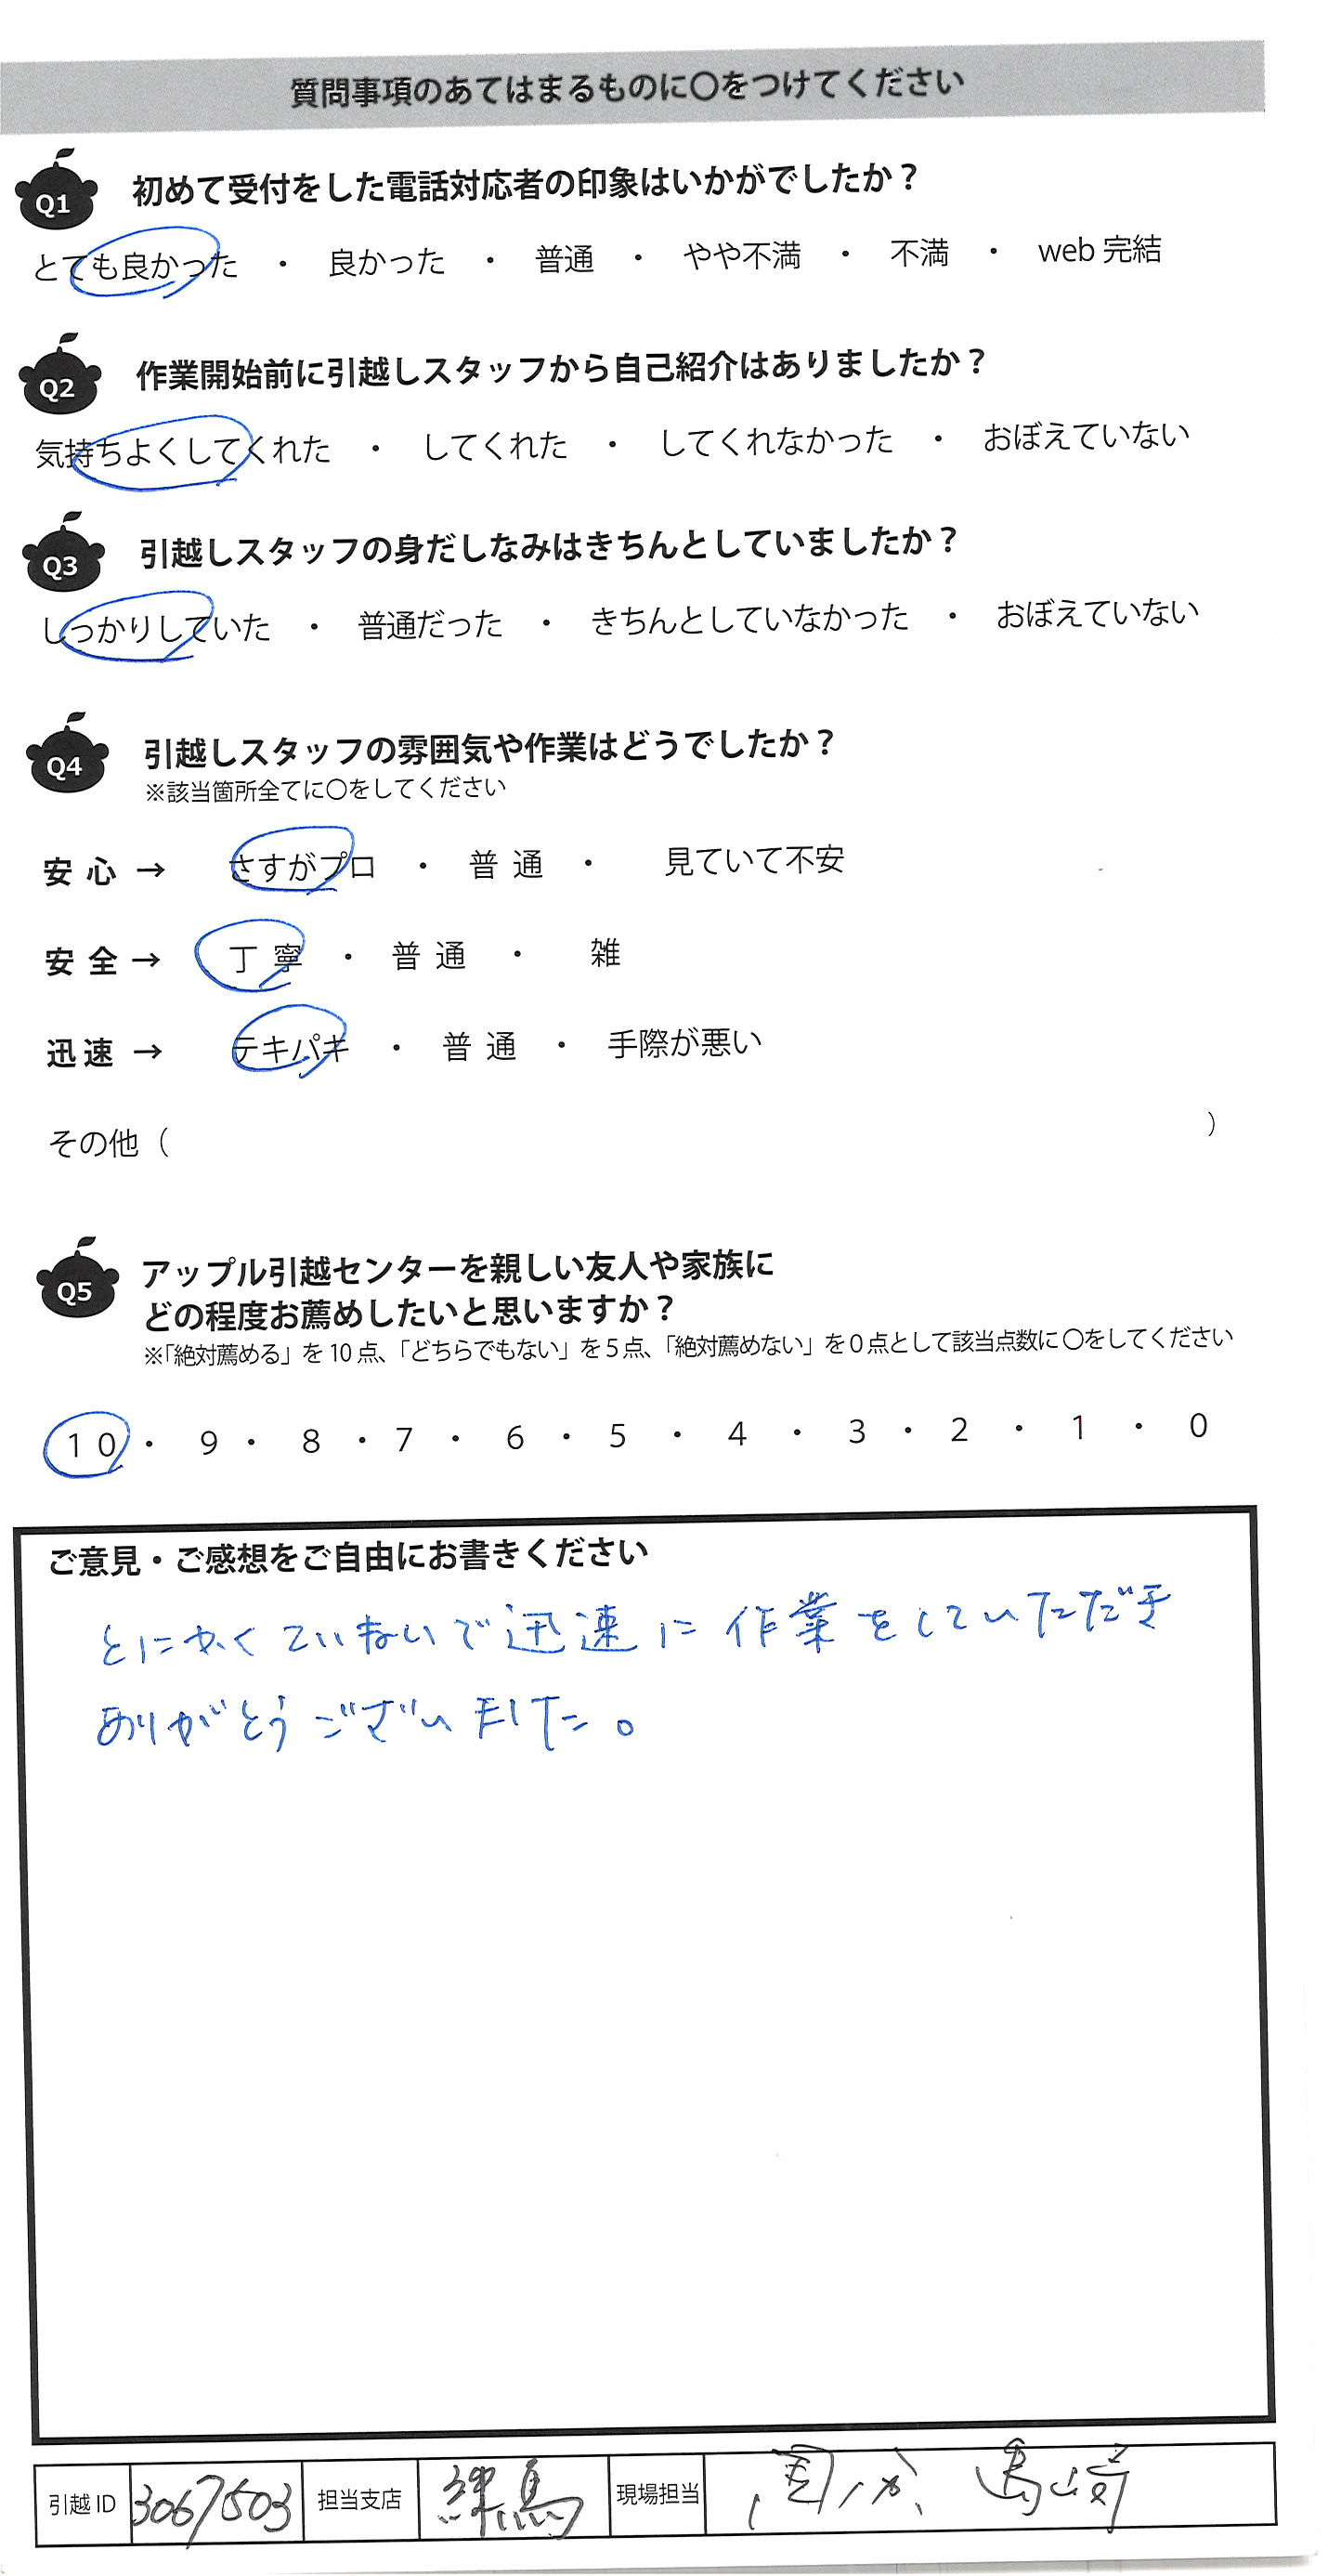 質問事項のあてはまるものに〇をつけてください
Q1 初めて受付をした電話対応者の印象はいかがでしたか？
とても良かった ・ 良かった ・ 普通 ・ やや不満 ・ 不満 ・ web 完結
Q2 作業開始前に引越しスタッフから自己紹介はありましたか？
気持ちよくしてくれた ・ してくれた ・ してくれなかった ・ おぼえていない
Q3 引越しスタッフの身だしなみはきちんとしていましたか？
しっかりしていた ・ 普通だった ・ きちんとしていなかった ・ おぼえていない
Q4 引越しスタッフの雰囲気や作業はどうでしたか？
※該当箇所全てに〇をしてください
安心 → さすがプロ ・ 普通 ・ 見ていて不安
安全 → 丁寧 ・ 普通 ・ 雑
迅速 → テキパキ ・ 普通 ・ 手際が悪い
その他（ ）
Q5 アップル引越センターを親しい友人や家族に
どの程度お薦めしたいと思いますか？
※「絶対薦める」を 10 点、「どちらでもない」を 5 点、「絶対薦めない」を 0 点として該当点数に 〇をしてください
10 ・ 9 ・ 8 ・ 7 ・ 6 ・ 5 ・ 4 ・ 3 ・ 2 ・ 1 ・ 0
ご意見・ご感想をご自由にお書きください
とにかくていねいで迅速に作業をしていただき
ありがとうございました。
引越 ID 3067503 担当支店 練馬 現場担当 島崎